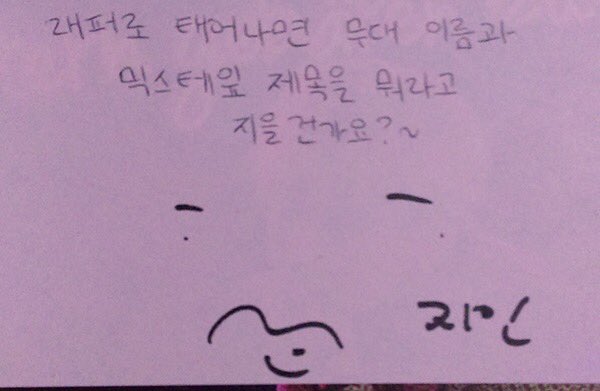 래퍼로 태어나면 무대 이름과
믹스테잎 제목을 뭐라고
지을 건가요?~
지민